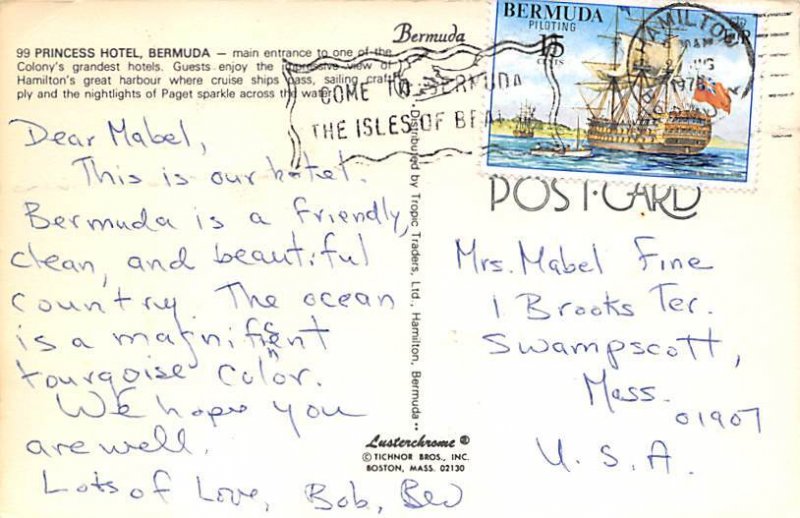 Bermuda
99 PRINCESS HOTEL, BERMUDA — main entrance to one of the
Colony's grandest hotels. Guests enjoy the impressive view of
Hamilton's great harbour where cruise ships pass, sailing craft
ply and the nightlights of Paget sparkle across the water.
BERMUDA
PILOTING
15
CENTS
HAMILTON
1978
COME TO BERMUDA
THE ISLES OF
POST-CARD
Dear Mabel,
This is our hotel.
Bermuda is a friendly,
clean, and beautiful
country. The ocean
is a magnifisent
tourqoise color.
We hope you
are well.
Lots of Love, Bob, Bev
Distributed by Tropic Traders, Ltd. Hamilton, Bermuda
Mrs. Mabel Fine
1 Brooks Ter.
Swampscott,
Mass.
01907
U.S.A.
Lusterchrome ®
© TICHNOR BROS., INC.
BOSTON, MASS. 02130